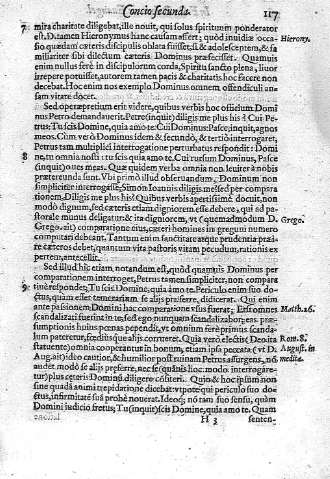 Concio secunda. 117
7 mira charitate diligebat, ille nouit, qui solus spirituum ponderator
est. D. tamen Hieronymus hanc causam assert: quòd inuidiæ occa- Hierony.
sio quædam cæteris discipulis oblata fuisset, si & adolescentem, & fa
miliariter sibi dilectum cæteris Dominus præfecisset. Quamuis
enim nullus ferè in discipulorum corda, Spiritu sancto plena, liuor
irrepere potuisset, autorem tamen pacis & charitatis hoc facere non
decebat. Hoc enim nos exemplo Dominus omnem offendiculi an-
sam vitare docet.
Sed operæpretium erit videre, quibus verbis hoc officium Domi
nus Petro demandauerit. Petre (inquit) diligis me plus his? Cui Pe-
trus: Tu scis Domine, quia amo te. Cui Dominus: Pasce, inquit, agnos
meos. Cum verò Dominus idem & secundò, & tertiò interrogaret,
Petrus tam multiplici interrogatione perturbatus respondit: Domi
8 ne, tu omnia nosti: tu scis quia amo te. Cui rursum Dominus, Pasce
(inquit) oues meas. Quæ quidem verba omnia non leuiter à nobis
prætereunda sunt. Vbi primò illud obseruandum, Dominum non
simpliciter interrogasse, Simon Ioannis diligis me, sed per compara
tionem. Diligis me plus his? Quibus verbis apertissimè docuit, non
modò dignum, sed cæteris etiam digniorem esse debere, qui ad pa-
storale munus desigatur: & ita digniorem, vt (quemadmodum D. Grego.
Grego. ait) comparatione eius, cæteri homines in gregum numero
computari debeant. Tantum enim sanctitate atque prudentia præi-
re cæteros debet, quantum vita pastoris vitam pecudum, rationis ex
pertem, antecellit.
Sed illud hîc etiam notandum est, quòd quamuis Dominus per
comparationem interroget, Petrus tamen simpliciter, non compara
9 tiuè respondet, Tu scis Domine, quia amo te. Periculo enim suo do-
ctus, quàm esset temerarium se alijs præferre, didicerat. Qui enim
ante passionem Domini hac comparatione vsus fuerat; Etsi omnes Matth. 26.
scandalizati fuerint in te, sed ego numquam scandalizabor: eius præ-
sumptionis huius pœnas pependit, vt omnium ferè primus scanda-
lum pateretur, sed citiùs quàm alijs corrueret. Quia verò electis (Deo ita Rom. 8.
statuente) omnia cooperantur in bonum, etiam ipsa peccata (vt D. August. in
Aug. ait) ideo cautior, & humilior post ruinam Petrus assurgens, nõ media.
audet modò se alijs præferre, nec se (quãuis hoc modo interrogare-
tur) plus cæteris Dominũ diligere côfiteri. Quin & hoc ipsum non
sine quadã animi trepidatione dicebat: vtpote qui periculo suo do-
ctus, infirmitatẽ suã probè nouerat. Ideoq; nõ tam suo sensu, quàm
Domini iudicio fretus, Tu (inquit) scis Domine, quia amo te. Quam
H 3 senten-